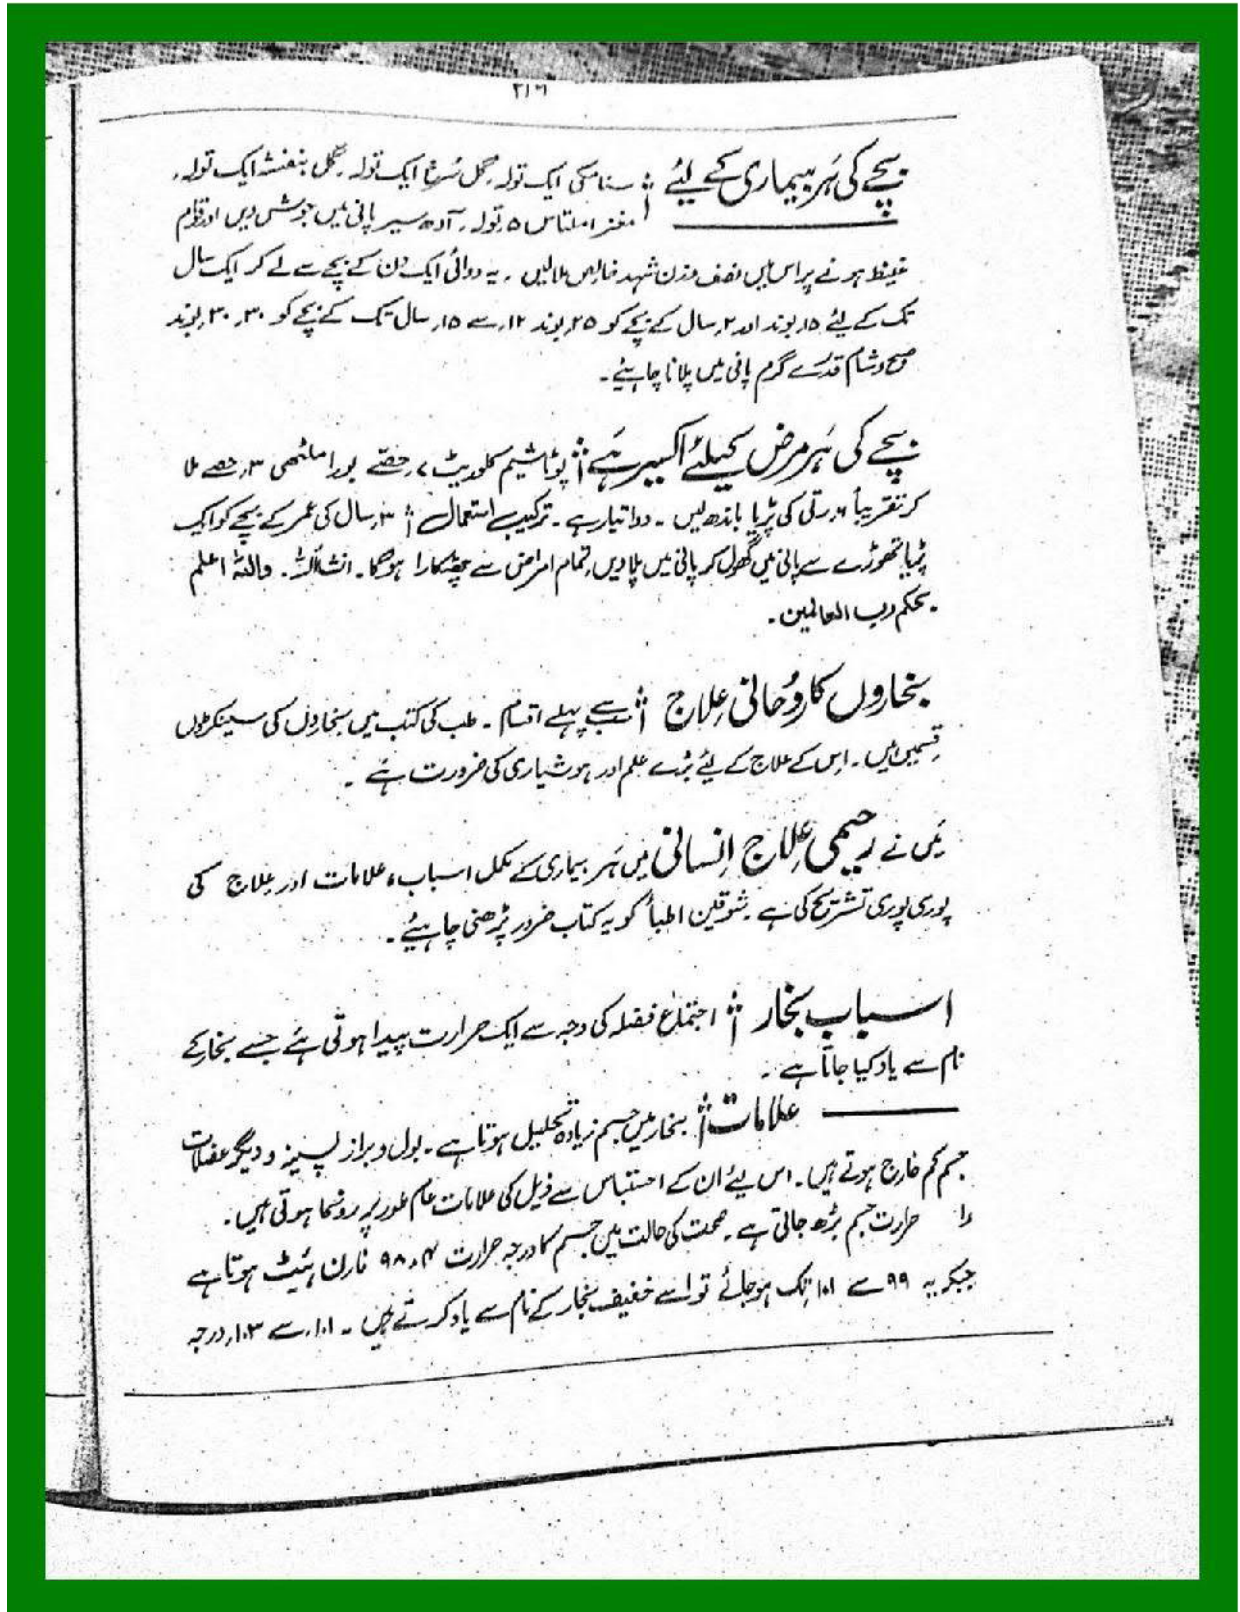 ۲۱۶
بچے کی ہَر بیماری کے لئے : سنا مکی ایک تولہ، گل سُرخ ایک تولہ، گل بنفشہ ایک تولہ،
مغز املتاس ۵ تولہ۔ آدھ سیر پانی میں جوش دیں اور قوام
غلیظ ہونے پر اس میں نصف وزن شہد خالص ملالیں ۔ یہ دوائی ایک دن کے بچے سے لے کر ایک سال
تک کے لئے ۱۵ بوند اور ۲ سال کے بچے کو ۲۵ بوند ۱۲ سے ۱۵ سال تک کے بچے کو ۳۰، ۳۰ بوند
صبح و شام قدرے گرم پانی میں پلانا چاہئے ۔
بچے کی ہَر مرض کیلئے اکسیر ہے : پوٹاشیم کلوریٹ ۷ حصّے بورا ملٹھی ۳ حصے ملا
کر تقریباً ۶ رتی کی پڑیا باندھ لیں ۔ دوا تیار ہے ۔ ترکیب استعمال : ۳ سال کی عمر کے بچے کو ایک
پڑیا تھوڑے سے پانی میں گھول کر پانی میں پلا دیں، تمام امراض سے چھٹکارا ہوگا ۔ انشاءاللہ ۔ واللہ اعلم
بحکم رب العالمین ۔
بخاروں کا رُوحانی عِلاج : سب سے پہلے اقسام ۔ طب کی کتب میں بخاروں کی سینکڑوں
قِسمیں ہیں ۔ اِس کے علاج کے لئے بڑے علم اور ہوشیاری کی ضرورت ہے ۔
مَیں نے رحیمی عِلاج اِنسانی میں ہَر بیماری کے مکمل اسباب، علامات اور عِلاج کی
پوری پوری تشریح کی ہے ۔ شوقین اطبأ کو یہ کتاب ضرور پڑھنی چاہیئے ۔
اسباب بخار : اجتماع فضلہ کی وجہ سے ایک حرارت پیدا ہوتی ہے جسے بخار کے
نام سے یاد کیا جاتا ہے ۔
علامات : بخار میں جسم زیادہ تحلیل ہوتا ہے ۔ بول و براز پسینہ و دیگر عضلات
جسم کم خارج ہوتے ہیں ۔ اس لئے ان کے احتباس سے ذیل کی علامات عام طور پر رونما ہوتی ہیں ۔
۱) حرارت جسم بڑھ جاتی ہے ۔ صحت کی حالت میں جسم کا درجہ حرارت ۹۸.۴ فارن ہَیٹ ہوتا ہے
جبکہ یہ ۹۹ سے ۱۰۱ تک ہو جائے تو اسے خفیف بخار کے نام سے یاد کرتے ہیں ۔ ۱۰۱ سے ۱۰۳ درجہ